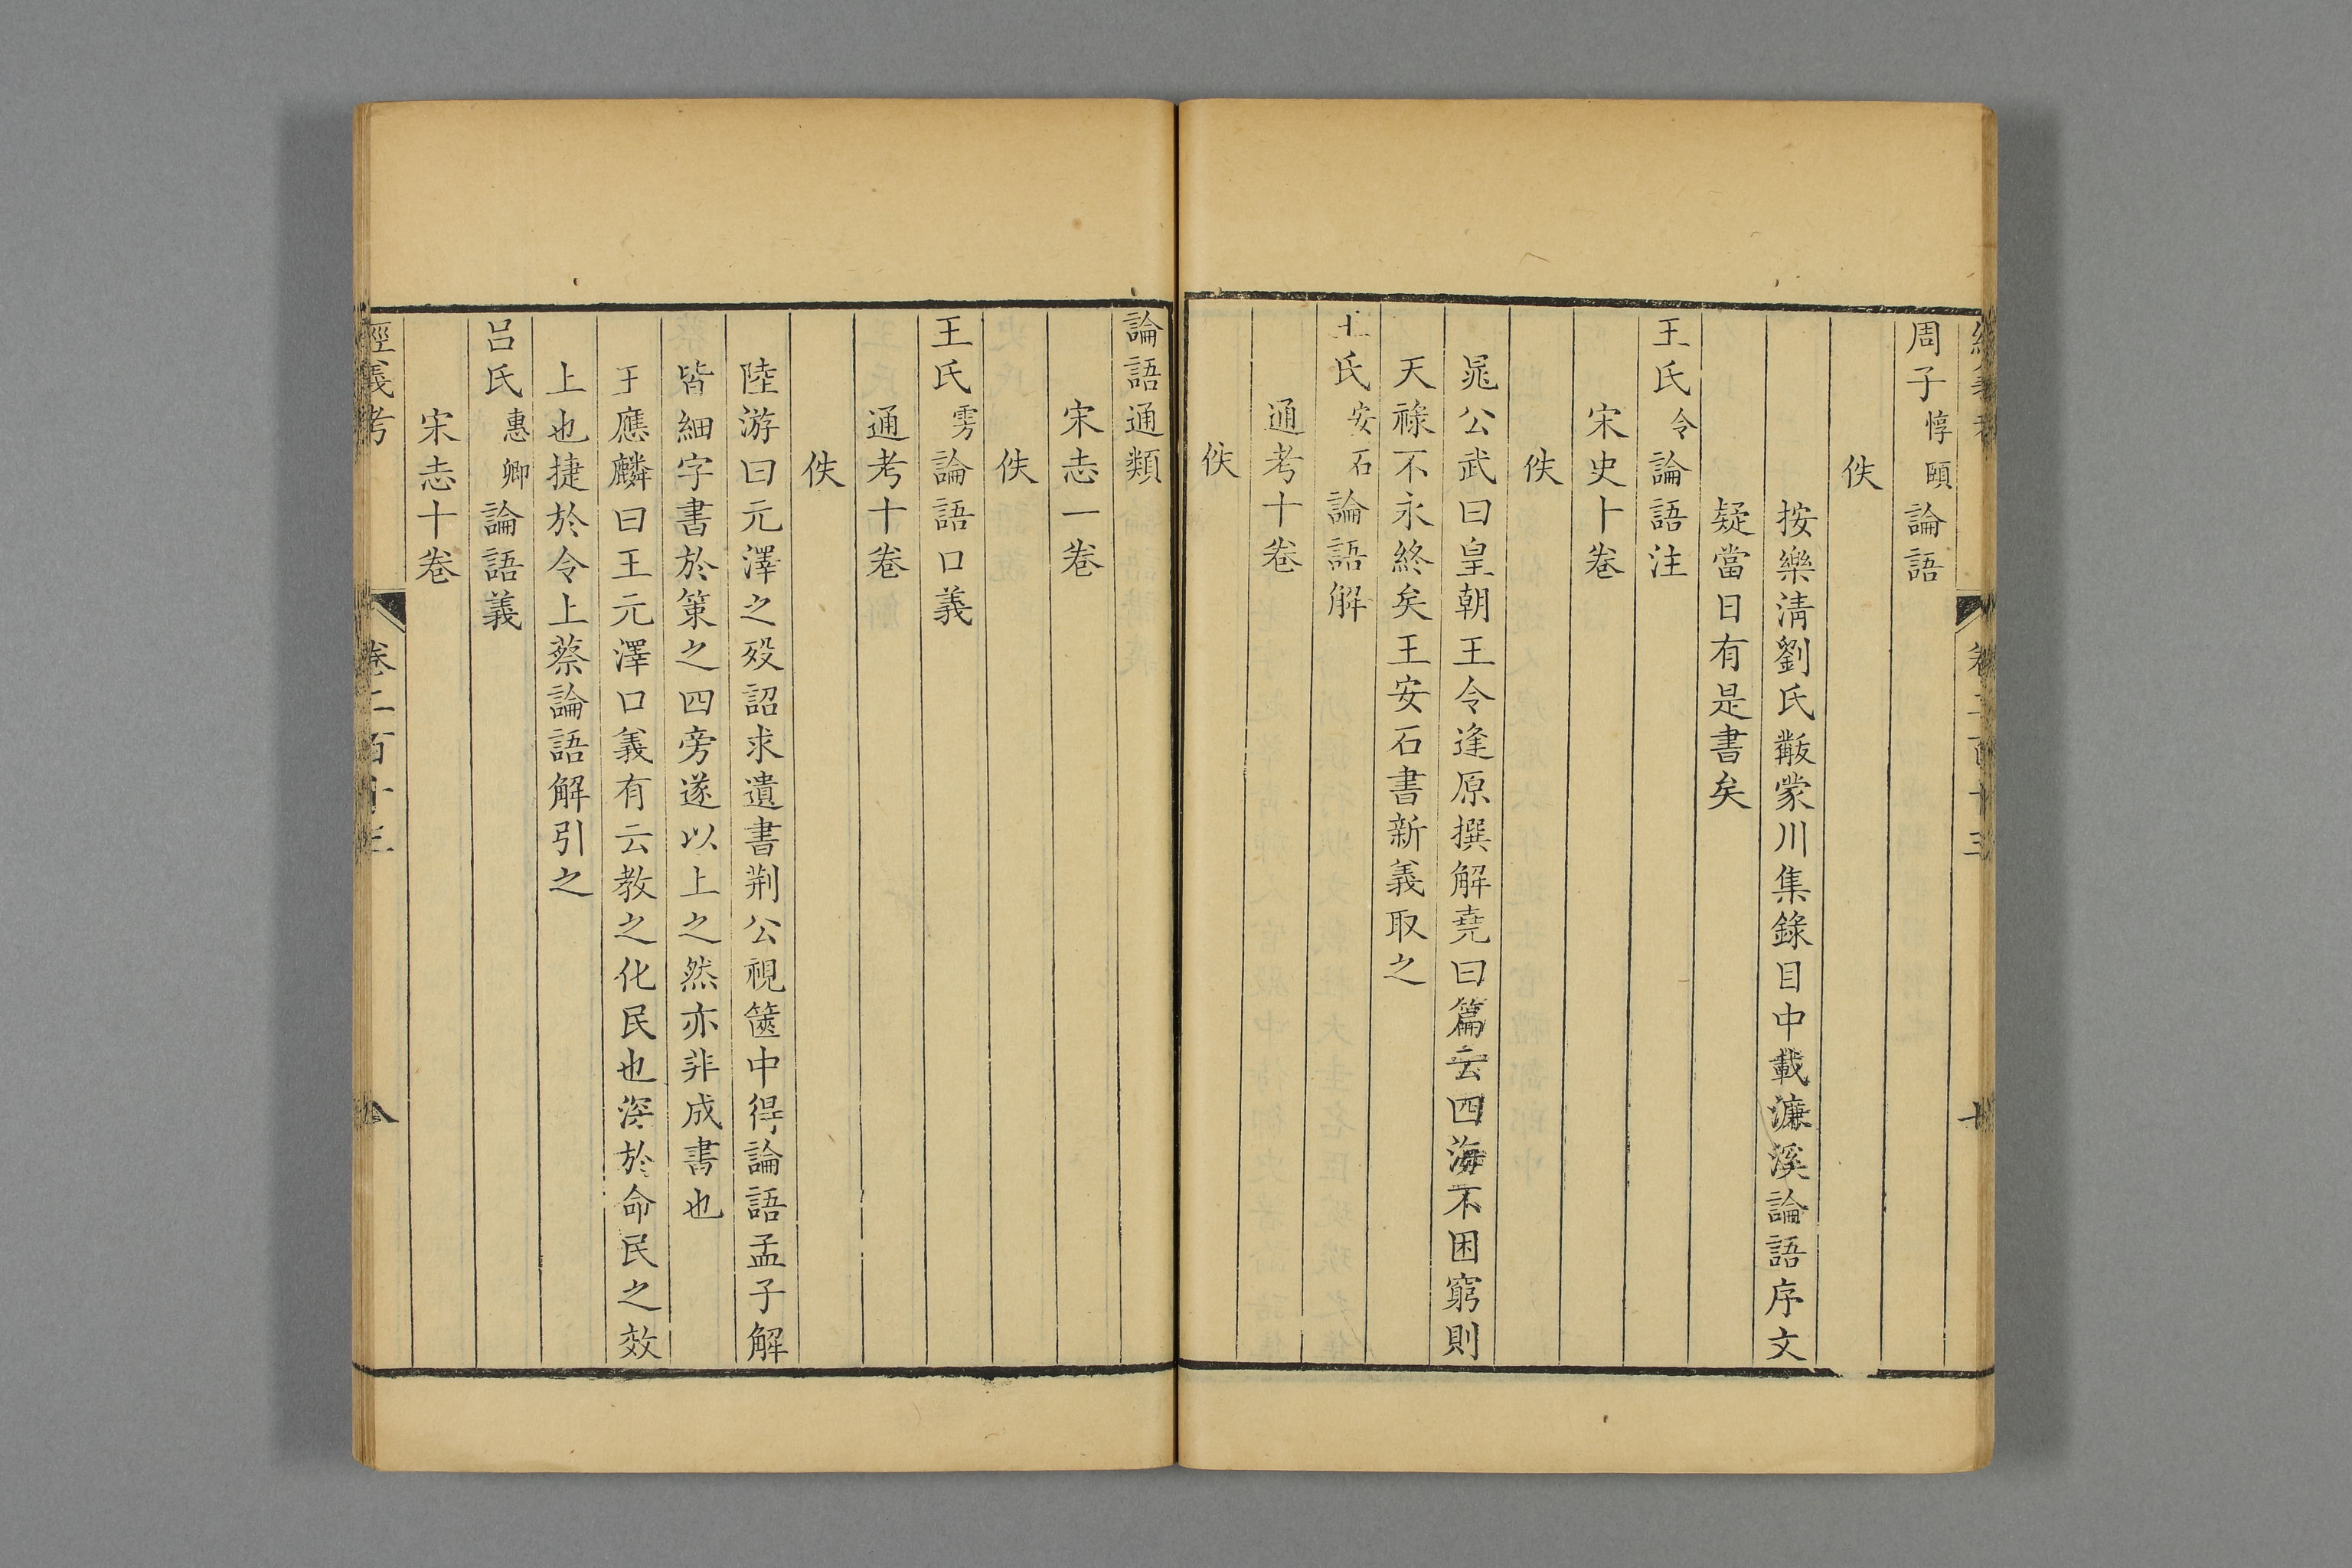 周子惇頤論語
佚
按樂清劉氏黻蒙川集錄目中載濂溪論語序文
疑當日有是書矣
王氏令論語注
宋史十卷
佚
晁公武曰皇朝王令逢原撰解堯曰篇云四海不困窮則
天祿不永終矣王安石書新義取之
王氏安石論語解
通考十卷
佚
論語通類
宋志一卷
佚
王氏雱論語口義
通考十卷
佚
陸游曰元澤之歿詔求遺書荆公視篋中得論語孟子解
皆細字書於策之四旁遂以上之然亦非成書也
王應麟曰王元澤口義有云教之化民也深於命民之效
上也捷於令上蔡論語解引之
呂氏惠卿論語義
宋志十卷
經義考 卷二百十三